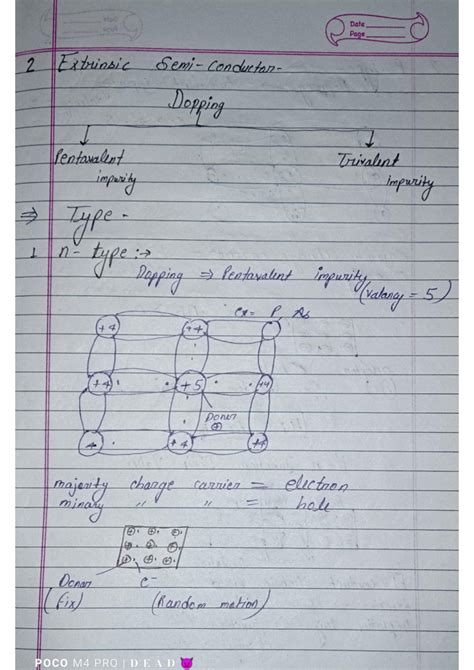 Date
Page
2 Extrinsic Semi-Conductor-
Dopping
Pentavalent impurity
Trivalent impurity
⇒ Type -
1 n-type :→
Dopping ⇒ Pentavalent impurity
(Valancy = 5)
ex= P, As
+4 +4
+4 +5 +4
Doner
⊕
+ +4 +4
majority charge carrier = electron
minary " " = hole
Doner e⁻
(Fix) (Random motion)
POCO M4 PRO | D E A D 😈